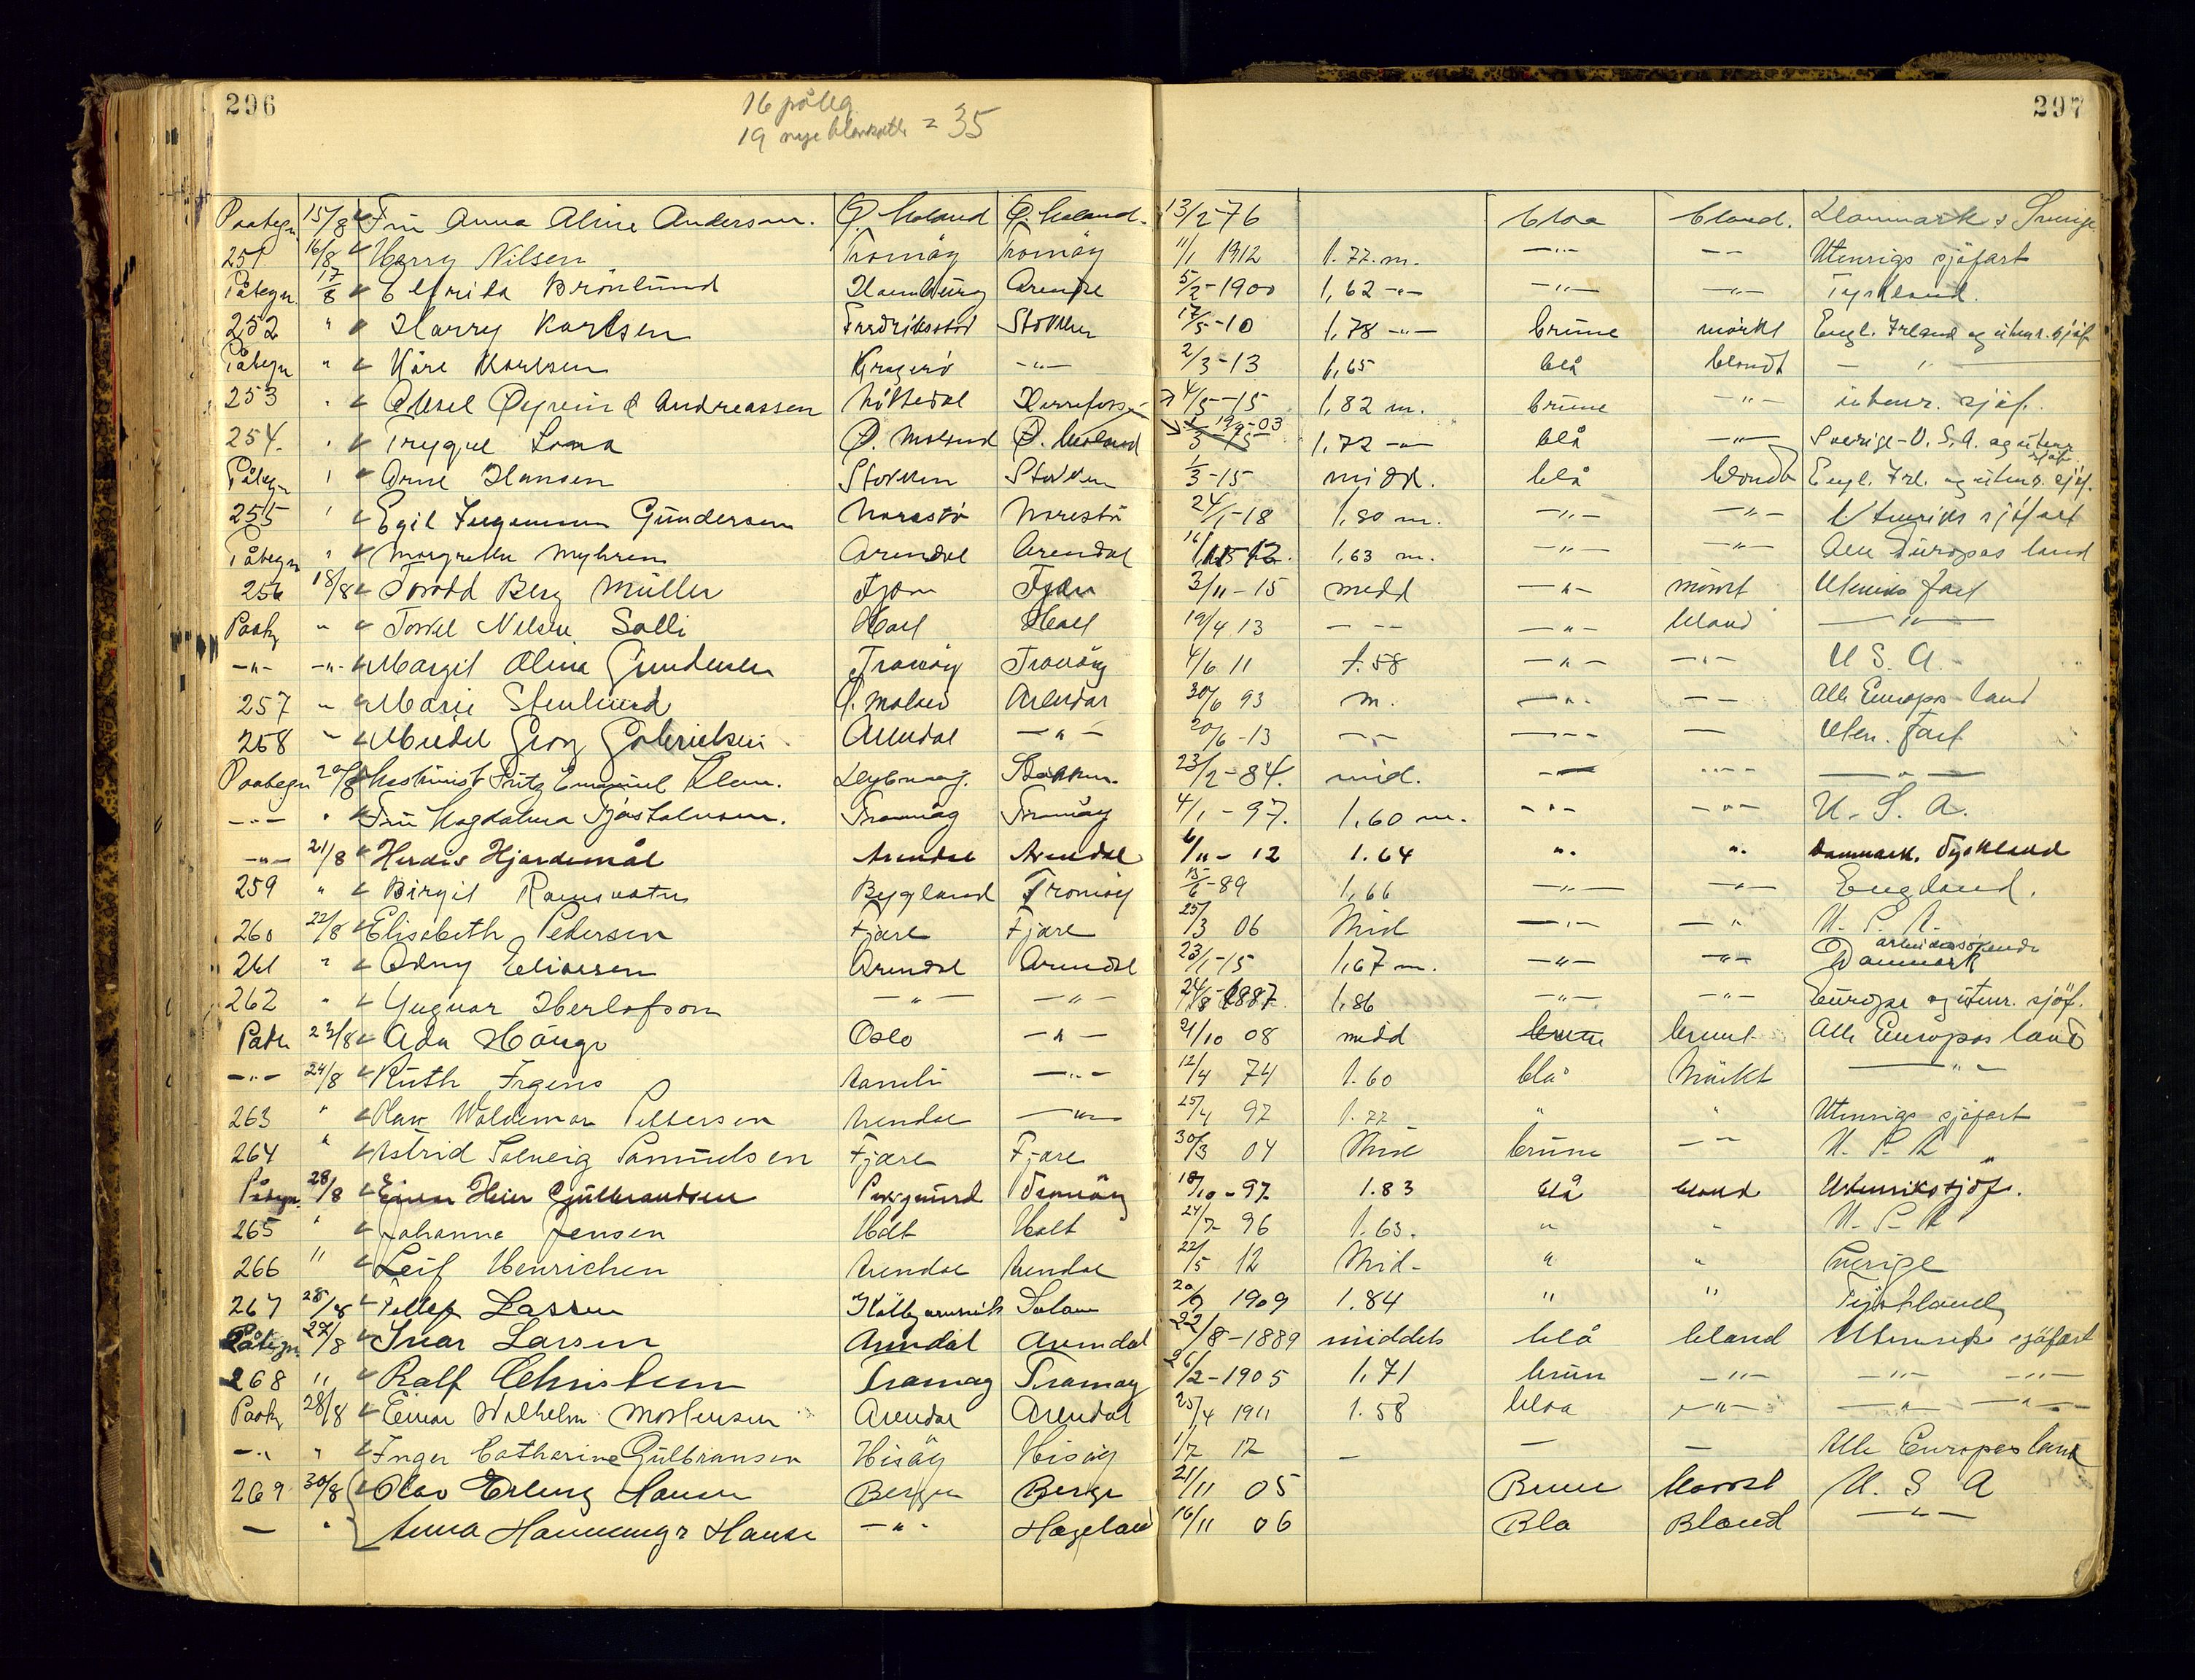 296
297
16 påteg.
19 nye = 35
Paategn. 15/8 Fru Anna Aline Andersen. Ø. Moland Ø. Moland. 13/2-76 blaa blond. Danmark & Sverige
251 16/8 Harry Nilsen Tromøy Tromøy 11/1 1912 1.77. m. —"— — — Utenrigs sjøfart
Påtegn. 17/8 Elfrida Brönlund Hamburg Arendal 5/2-1900 1,62 -"- —"— —"— Tyskland.
252 " Harry Karlsen Fredriksstad Stokken 17/5-10 1,78 -"- brune mörkt Engl. Irland og utenr. sjöf.
Påtegn " Kåre Karlsen Kragerö —"— 2/3-13 1,65 blå blondt — " —
253 " Aksel Øyvind Andreassen 4/5-15 1,82 m. brune —"— utenr. sjöf.
254. " Trygve Ø. Moland Ø. Moland 1,72 -"- blå —"— Sverige-U.S.A. og utenr. sjöf.
Påtegn " Arne Hansen Stokken Stokken 1/3-15 midd. blå blondt Engl. Irl. og utenr. sjöf.
255 " Egil Ingemann Gundersen Narestö Narestö 24/1-18 1,80 m. —"— —"— Utenriks sjöfart
Påtegn " Margrethe Myhren Arendal Arendal 1,63 m. —"— —"— Alle Europas land
256 18/8 Torodd Berg Müller 3/11-15 midd —"— mörkt Utenriks fart
Paateg " Nilsen Salli Holt Holt 19/4 13 — — —"— blond —"—
—"— —"— Margit Olina Gundersen Tromöy Tromöy 4/6 11 1.58 —"— —"— U S. A.
257 " Marie Stenlund Ø. Moland Arendal 30/6 93 m. —"— — — Alle Europas land
258 " Georg Gabrielsen Arendal —"— 20/6-13 — — — — — Uten. fart
Paategn 20/8 Maskinist Fritz Emanuel Stokken. 23/2-84. mid. —"— —"— —"—
—"— " Fru Magdalena Tromöy Tromöy 4/1-97. 1,60 m. —"— —"— U. S. A.
—"— 21/8 Herdis Hjardemål Arendal Arendal 6/11-12 1.64 " " Danmark, Tyskland
259 " Birgit Ramsvatn Bygland Tromöy 15/6-89 1,66 —"— —"— England.
260 22/8 Elisabeth Pedersen Fjære Fjære 25/3 06 Mid —"— —"— U. S. A.
261 " Odny Eliassen Arendal Arendal 23/1-15 1,67 m. —"— —"— arbeidssøkende Danmark
262 " Yngvar Herlofson —"— —"— 24/8 1887. 1,86 —"— —"— Europa og utenr. sjöf.
Paateg 23/8 Ada Oslo —"— 21/10 08 midd brune brunt Alle Europas land
—"— 24/8 Ruth Irgens —"— 12/4 74 1.60 blå Mörkt —"—
263 " Olav Waldemar Pettersen Arendal —"— 25/4 97 1.77 " " Utenrigs sjøfart
264 " Astrid Solveig Samuelsen Fjære Fjære 30/3 04 Mid brune — — U. S. A
Påtegn. 28/8 Einar Heier Gulbrandsen Porsgrund Tromöy 18/10-97 1.83 blå blond Utenrikssjöf.
265 " Johanne Jensen Holt Holt 24/7 96 1.63. " " U. S. A
266 " Leif Henrichsen Arendal Arendal 22/5 12 Mid- " " Sverige
267 28/8 Lassen 20/7 1909 1.84 " " Tyskland
Påtegn. 27/8 Ivar Larsen Arendal Arendal 22/8-1889 middels blå blond Utenriks sjöfart
268 " Ralf Christensen Tromøy Tromøy 26/2-1905 1,71 brun —"— —"— —"—
Paateg 28/8 Einar Wilhelm Mortensen Arendal Arendal 25/4 1911 1.58 blaa —"— —"— —"—
—"— " Inger Catharine Gulbransen Hisöy Hisöy 1/7 12 — — — Alle Europas land
269 30/8 Olav Erling Hansen Bergen Berge 21/11 05 Brune Mørkt U. S A
— " Anna Hansen —"— Hageland 16/11 06 Blå Blond —"—